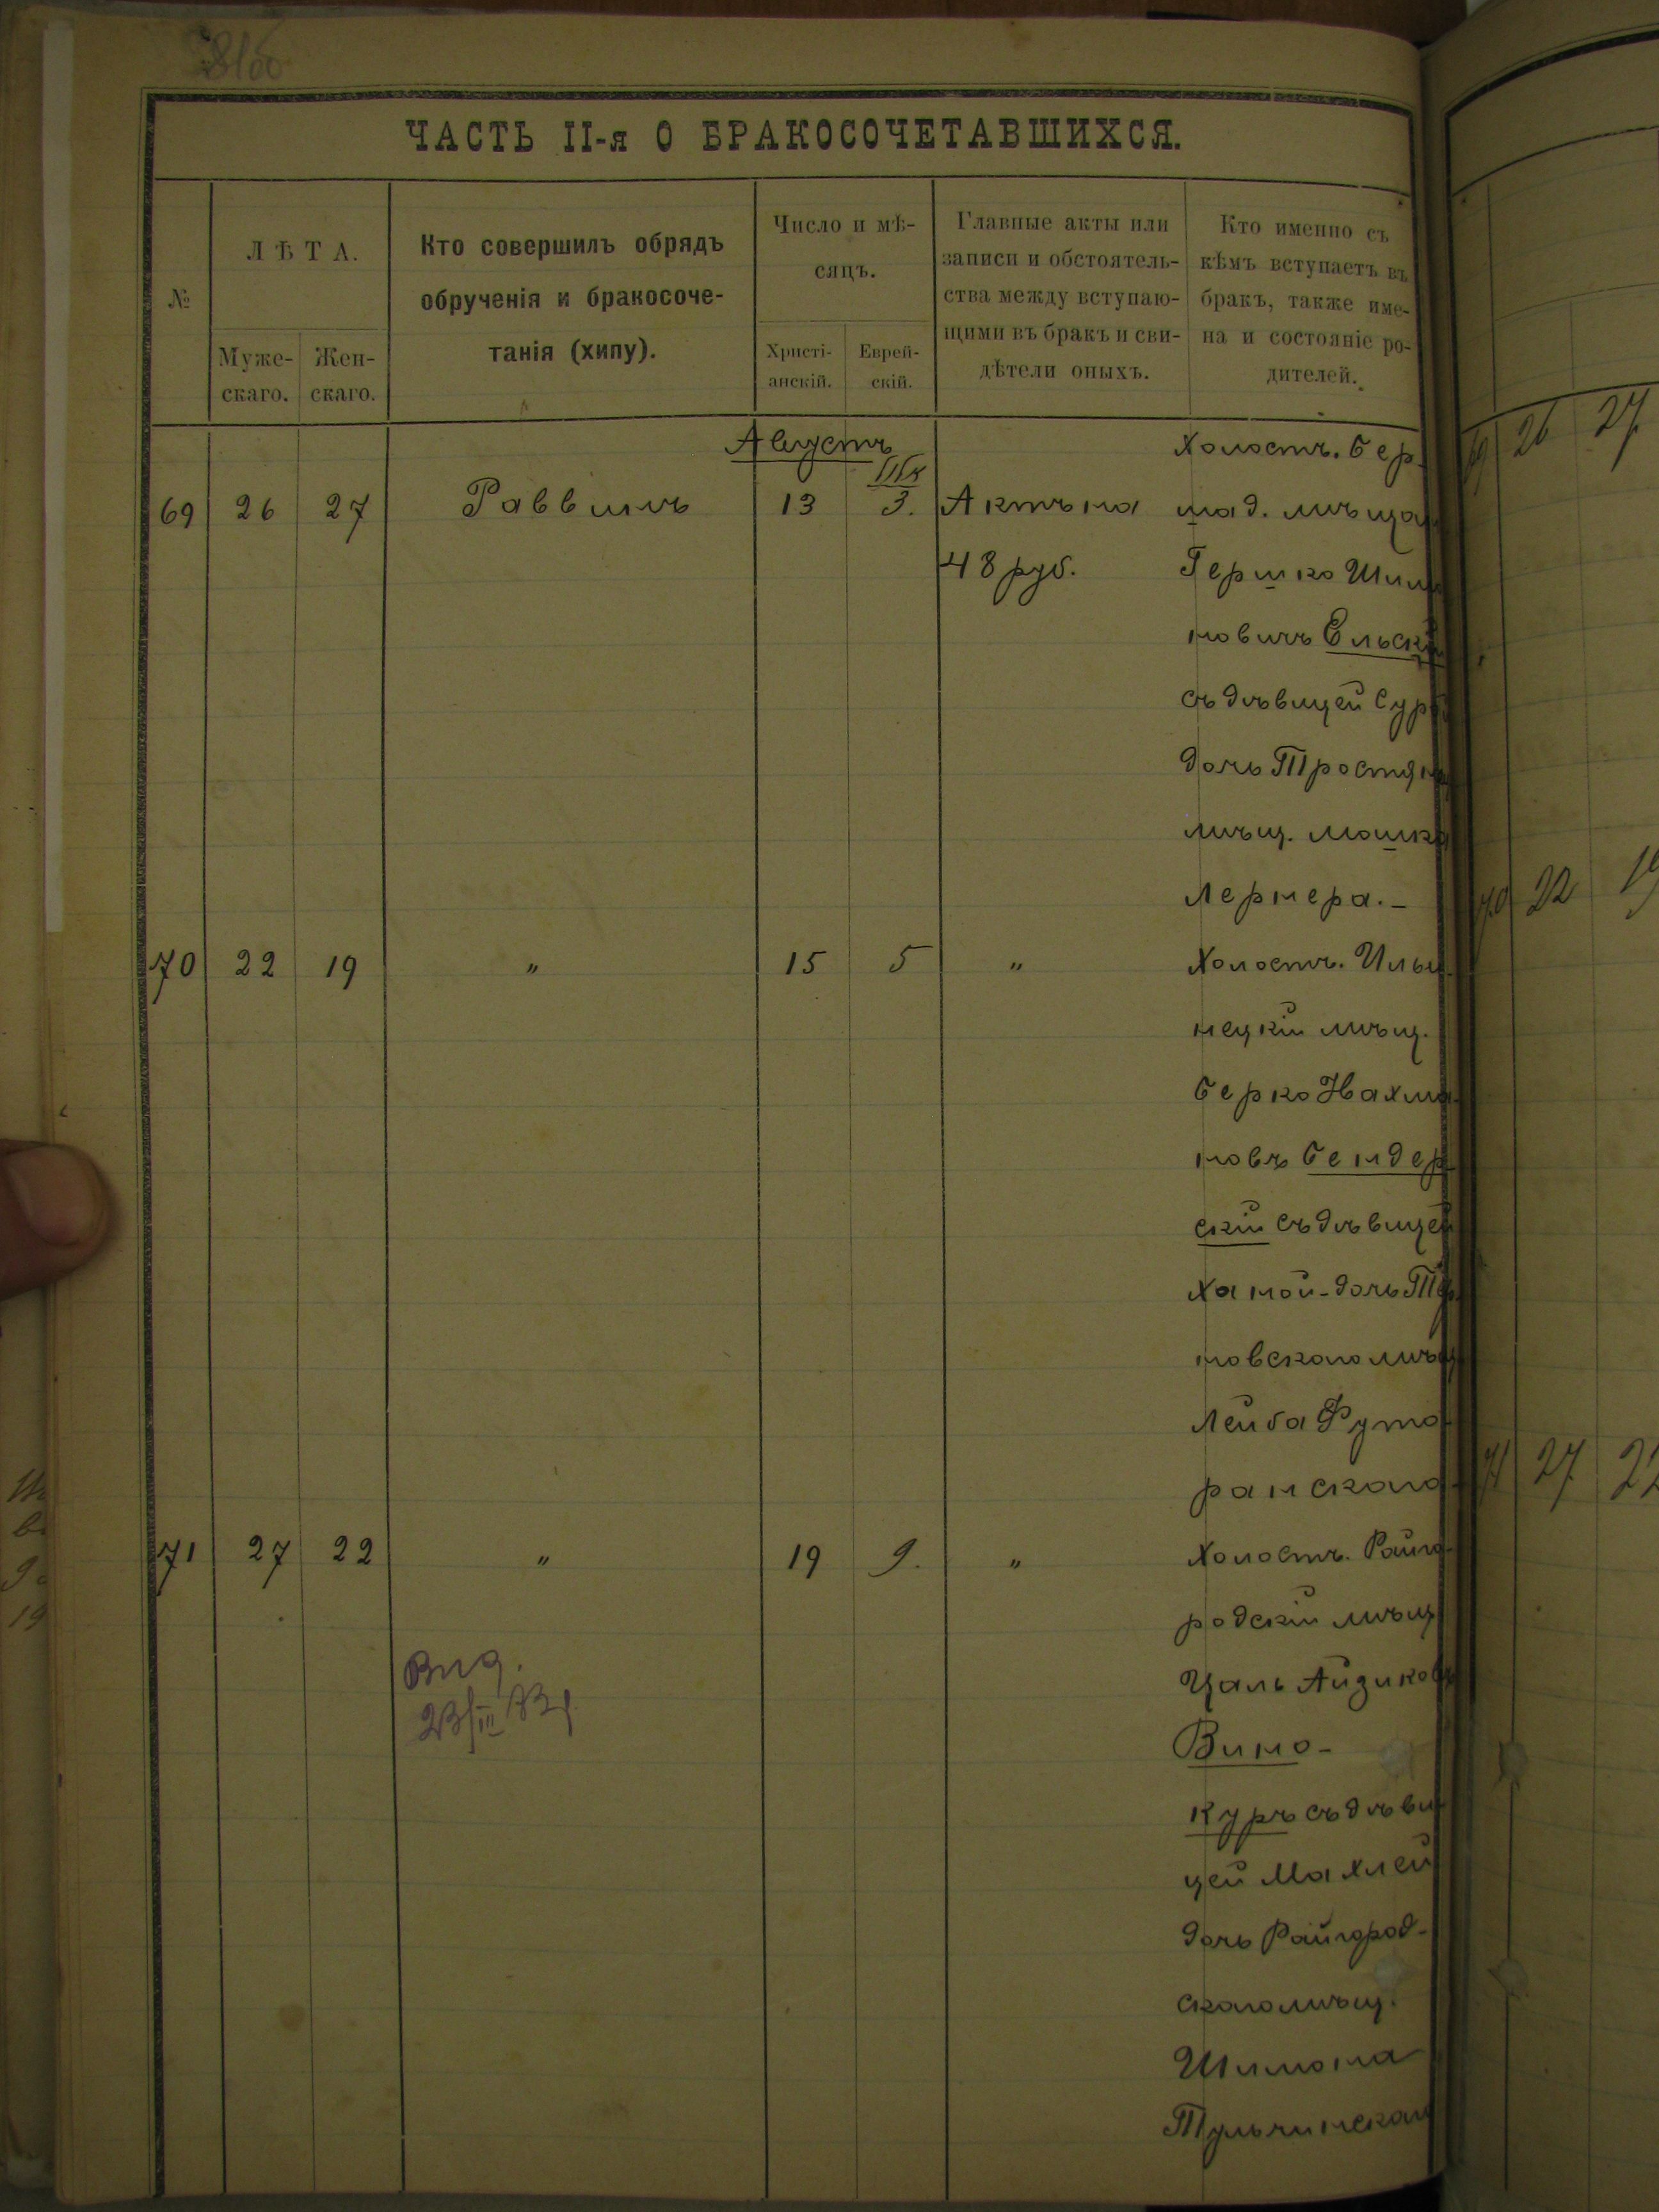 ЧАСТЬ II-я О БРАКОСОЧЕТАВШИХСЯ.
№
ЛѢТА.
Муже-
скаго.
Жен-
скаго.
Кто совершилъ обрядъ
обрученія и бракосоче-
танія (хипу).
Число и мѣ-
сяцъ.
Христі-
анскій.
Еврей-
скій.
Главные акты или
записи и обстоятель-
ства между вступаю-
щими въ бракъ и сви-
дѣтели оныхъ.
Кто именно съ
кѣмъ вступаетъ въ
бракъ, также име-
на и состояніе ро-
дителей.
Августъ
Холостъ. Бер-
69 26 27 Раввинъ 13 3. Актъ на шад. мѣща
48 руб. Гершко Шим
новичъ Ельскій
съ дѣвицей Сур
дочь Тростян
мѣщ. Мошка
Лернера.-
70 22 19 " 15 5 " Холостъ. Ильи-
нецкій мѣщ.
Берко Нахма-
новъ Бендер-
скій съ дѣвицей
Ханой-дочь
новскаго мѣщ
Лейба Футо-
ранскаго
71 27 22 " 19 9. " Холостъ. Райго-
родскій мѣщ
Цаль Айзиковъ
Вино-
куръ съ дѣви-
цей Махлей
дочь Райгород-
скаго мѣщ.
Шимона
Тульчинскаго
26 27
22 19
71 27 22